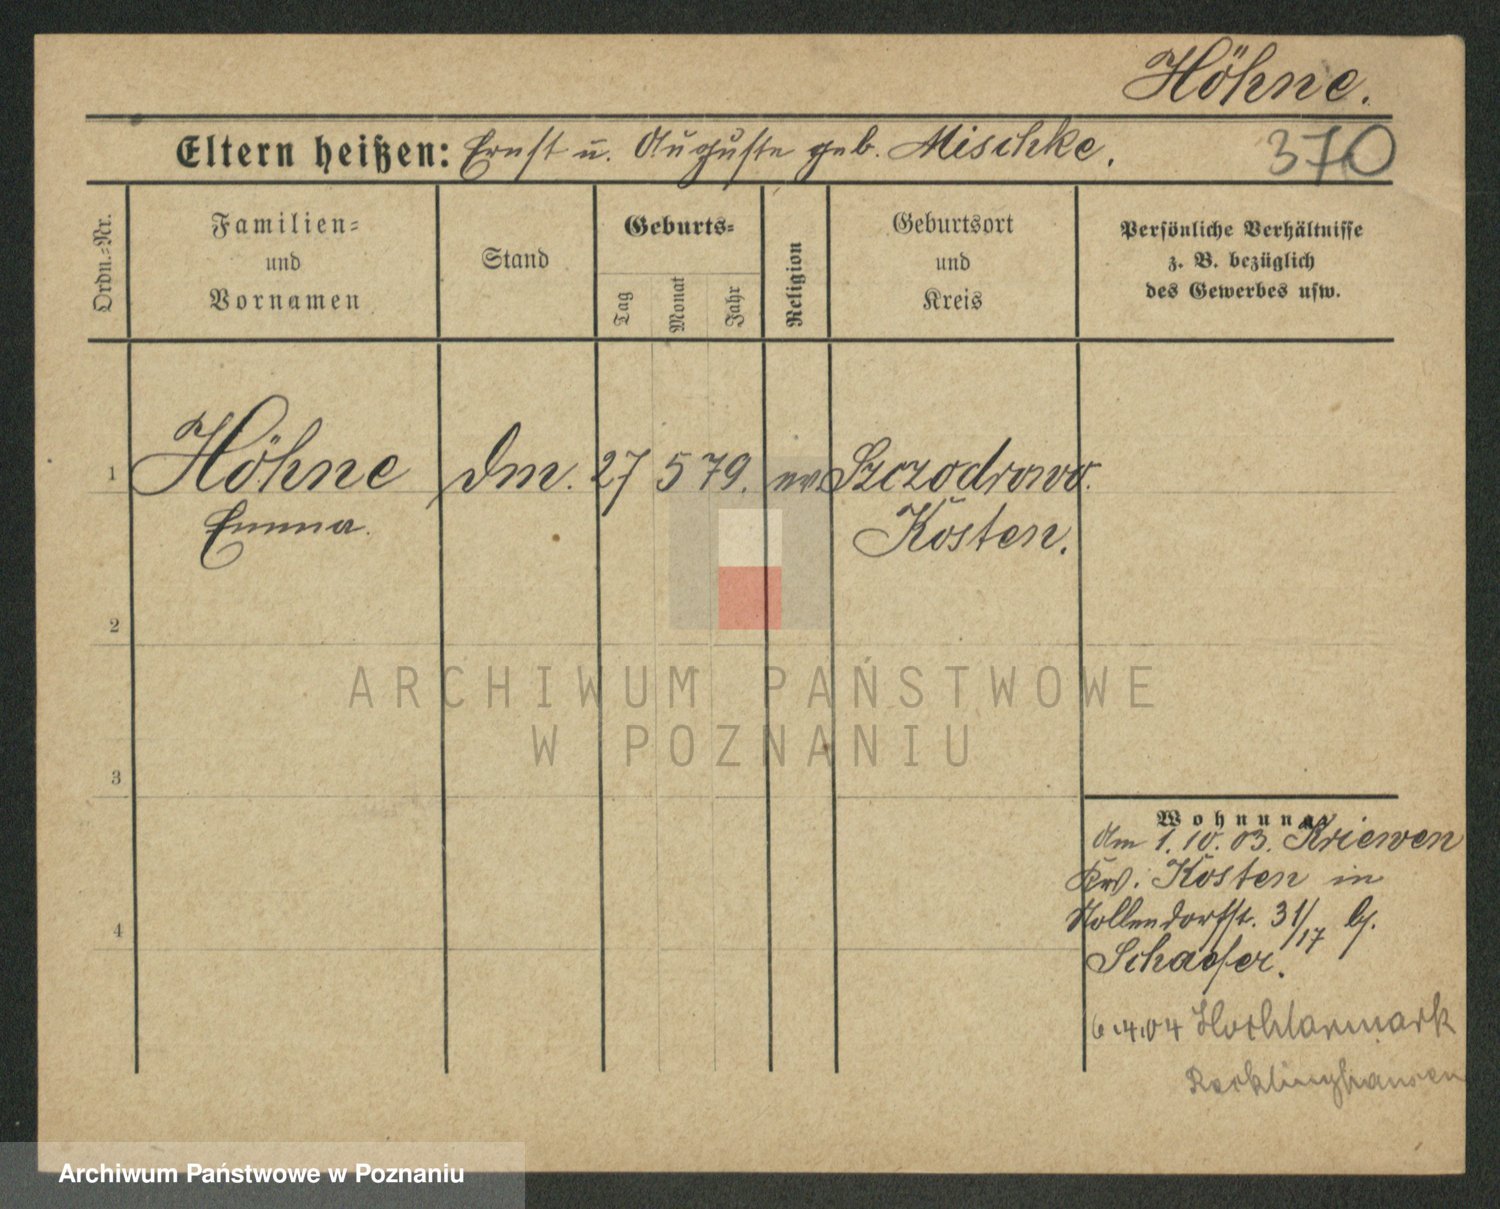 Höhne.
Eltern heißen: Ernst u. Auguste geb. Mischke.
370
Ordn.-Nr.
Familien-
und
Vornamen
Stand
Geburts-
Tag
Monat
Jahr
Religion
Geburtsort
und
Kreis
Persönliche Verhältnisse
z. B. bezüglich
des Gewerbes usw.
1 Höhne Dm. 27 5 79. ev. Szczodrowo.
Emma. Kosten.
2
3
4
Wohnung
Am 1.10.03. Kriewen
Krs. Kosten in
Nollendorfst. 31/17 b.
Schaefer.
6.4.04 Hochlarmark
Recklinghausen
ARCHIWUM PAŃSTWOWE
W POZNANIU
Archiwum Państwowe w Poznaniu